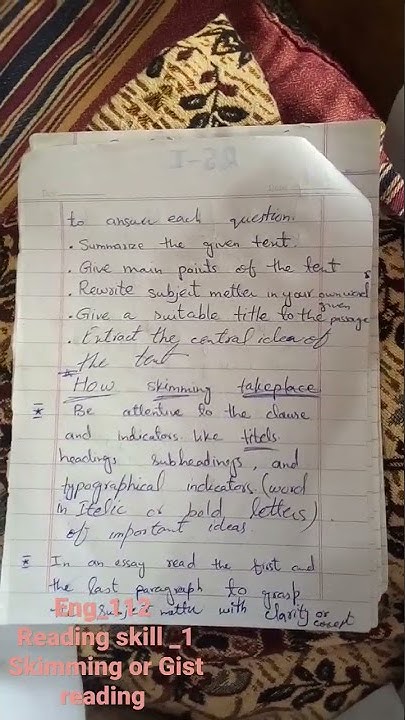 to answer each question.
• Summarize the given tent.
• Give main points of the tent
• Rewrite subject metter in your own words
• Give a suitable title to the given passage
• Extract the central idea of
the text
How skimming takeplace
Be attentive to the clause
and indicators like titels
headings subheadings, and
typographical indicators (word
in Itelic or bold letters)
of important ideas.
In an essay read the first and
the last paragraph to grasp
matter with clarity or
Eng_112
Reading skill _1
Skimming or Gist
reading